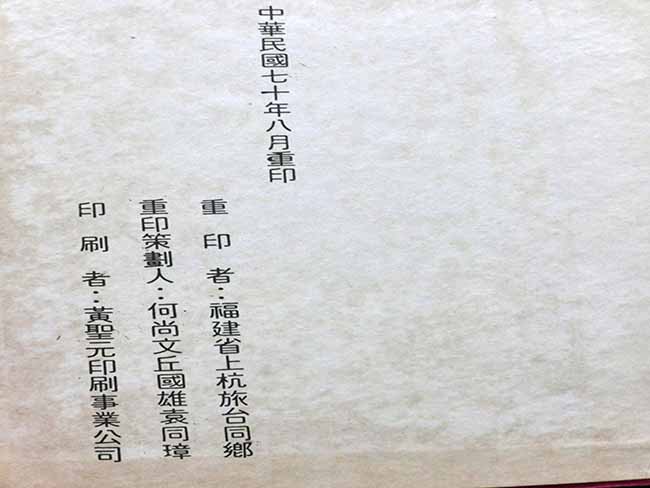 中華民國七十年八月重印
重印者：福建省上杭旅台同鄉
重印策劃人：何尚文丘國雄袁同璋
印刷者：黃聖元印刷事業公司